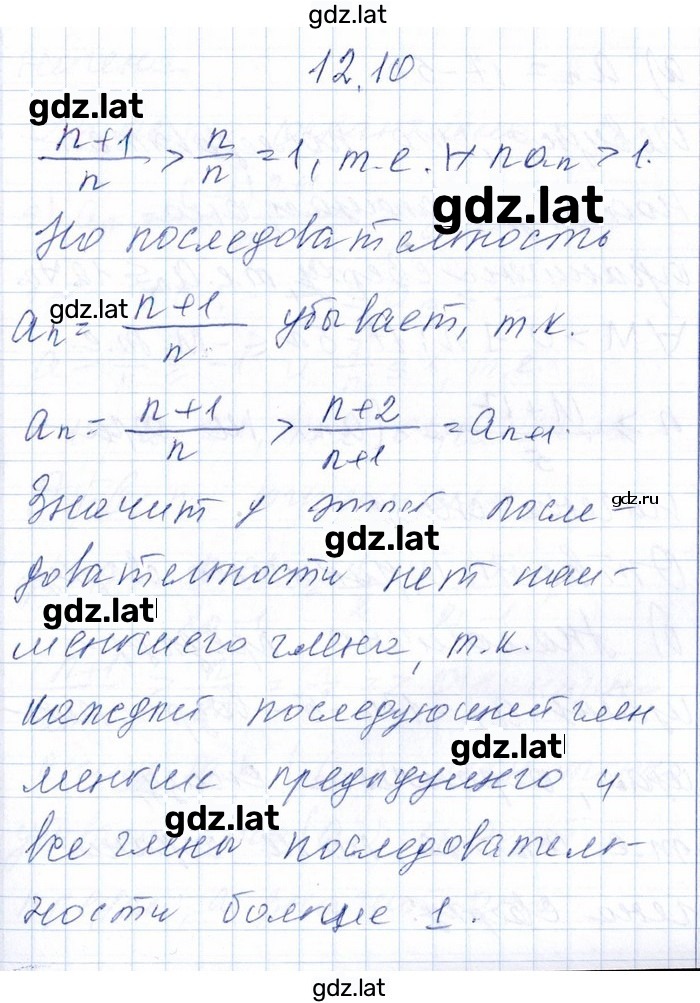 gdz.lat
12.10
gdz.lat
n+1/n > n/n = 1, т.е. ∀ n aₙ > 1.
gdz.lat
Но последовательность
gdz.lat
aₙ = n+1/n убывает, т.к.
aₙ = n+1/n > n+2/n+1 = aₙ₊₁.
gdz.ru
Значит у этой после-
gdz.lat
довательности нет наи-
gdz.lat
меньшего члена, т.к.
каждый последующий член
gdz.lat
меньше предыдущего и
gdz.lat
все члены последователь-
ности больше 1.
gdz.lat